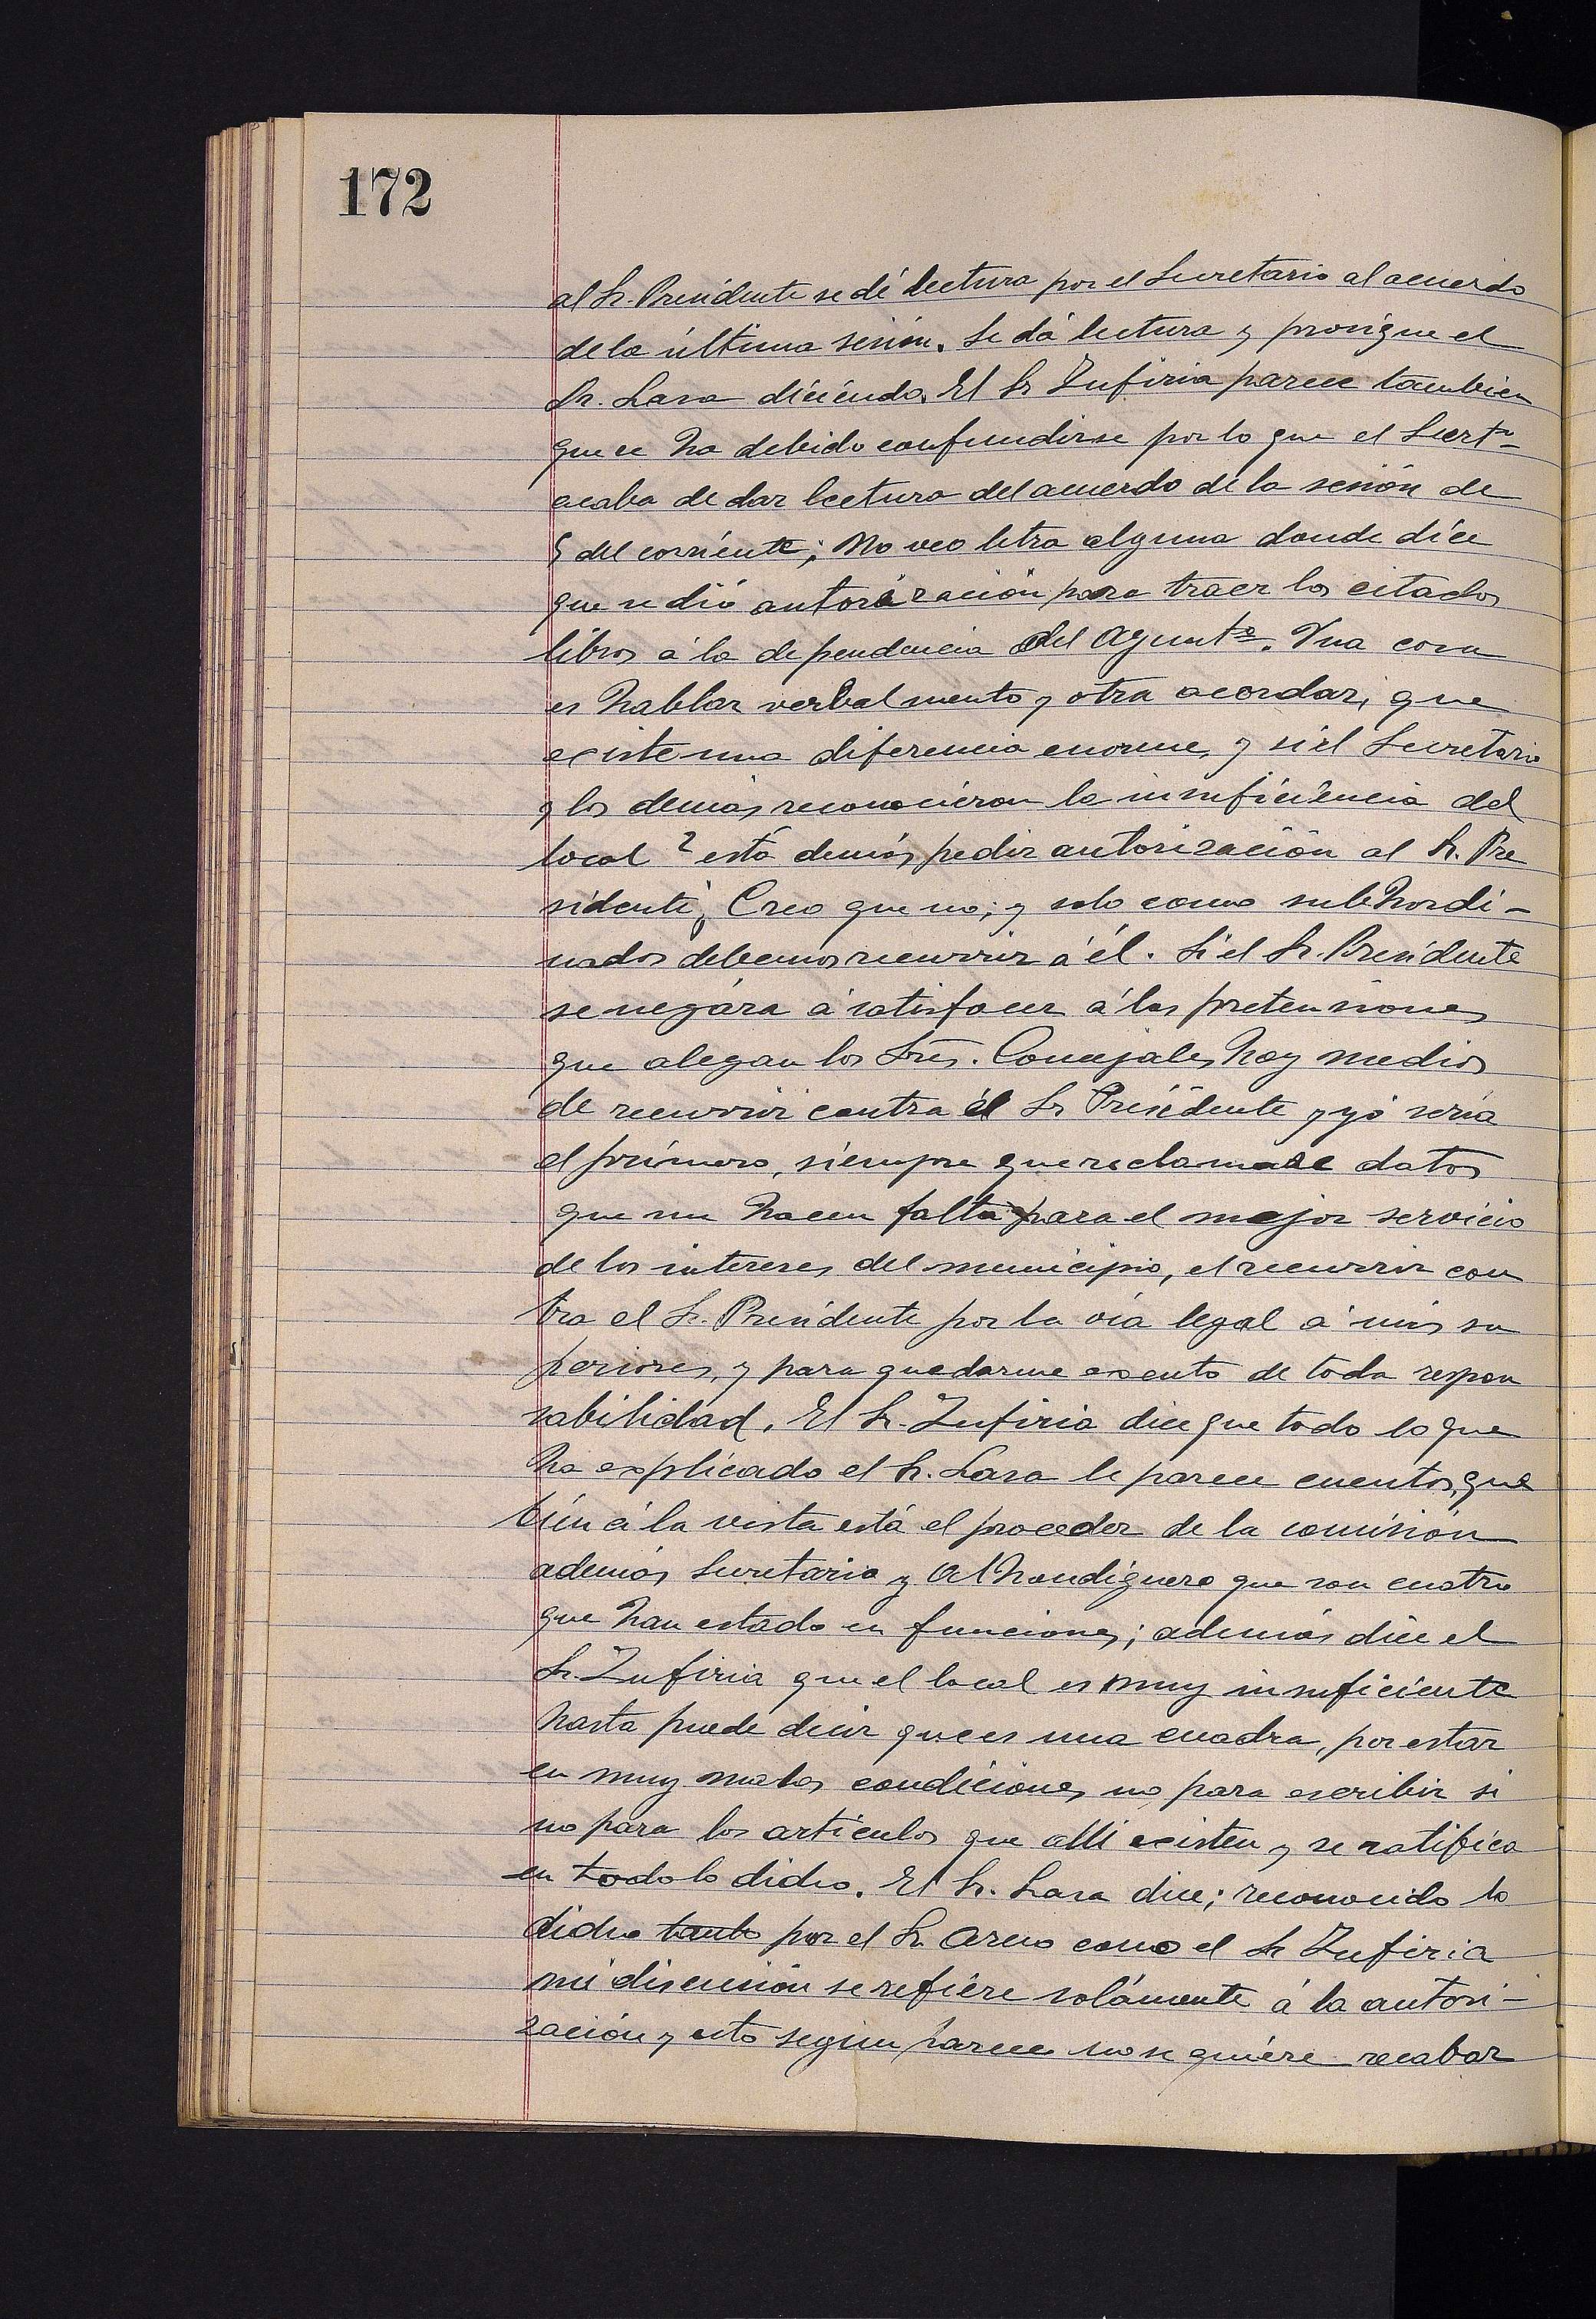 172
al Sr. Presidente se dé lectura por el Secretario al acuerdo
de la última sesión. Se dá lectura y prosigue el
Sr. Lasa diciendo. El Sr Zufiria parece tambien
que se ha debido confundirse por lo que el Secrtº
acaba de dar lectura del acuerdo de la sesión de
5 del corriente; No veo letra alguna donde dice
que se dió autorización para traer los citados
libros á la dependencia del Ayuntº. Una cosa
es hablar verbalmente y otra acordar, que
existe una diferencia enorme, y si el Secretario
y los demás reconocieron la insuficiencia del
local ? está demás pedir autorización al Sr. Pre
sidente, Creo que no; y solo como subhordi-
nados debemos recurrir á él. Si el Sr. Presidente
se negára á satisfacer á las pretensiones
que alegan los Sres. Concejales hay medios
de recurrir contra él Sr Presidente y yó sería
el primero, siempre que reclamase datos
que me hacen falta para el mejor servicio
de los intereses del municipio, el recurrir con
tra el Sr. Presidente por la vía legal á mis su
periores, y para quedarme exento de toda respon
sabilidad. El Sr. Zufiria dice que todo lo que
ha explicado el Sr. Lasa le parece cuentos, que
bién á la vista está el proceder de la comisión
además Secretario y Alhondiguero que son cuatro
que han estado en funciones; además dice el
Sr. Zufiria que el local es muy insuficiente
hasta puede decir que es una cuadra, por estar
en muy malas condiciones no para escribir si
no para los artículos que allí existen y se ratifica
en todo lo dicho. El Sr. Lasa dice; reconocido lo
dicho tanto por el Sr. Areso como el Sr Zufiria
mi discusión se refiere solámente á la autori-
zación y esto segun parece no se quiere recabar